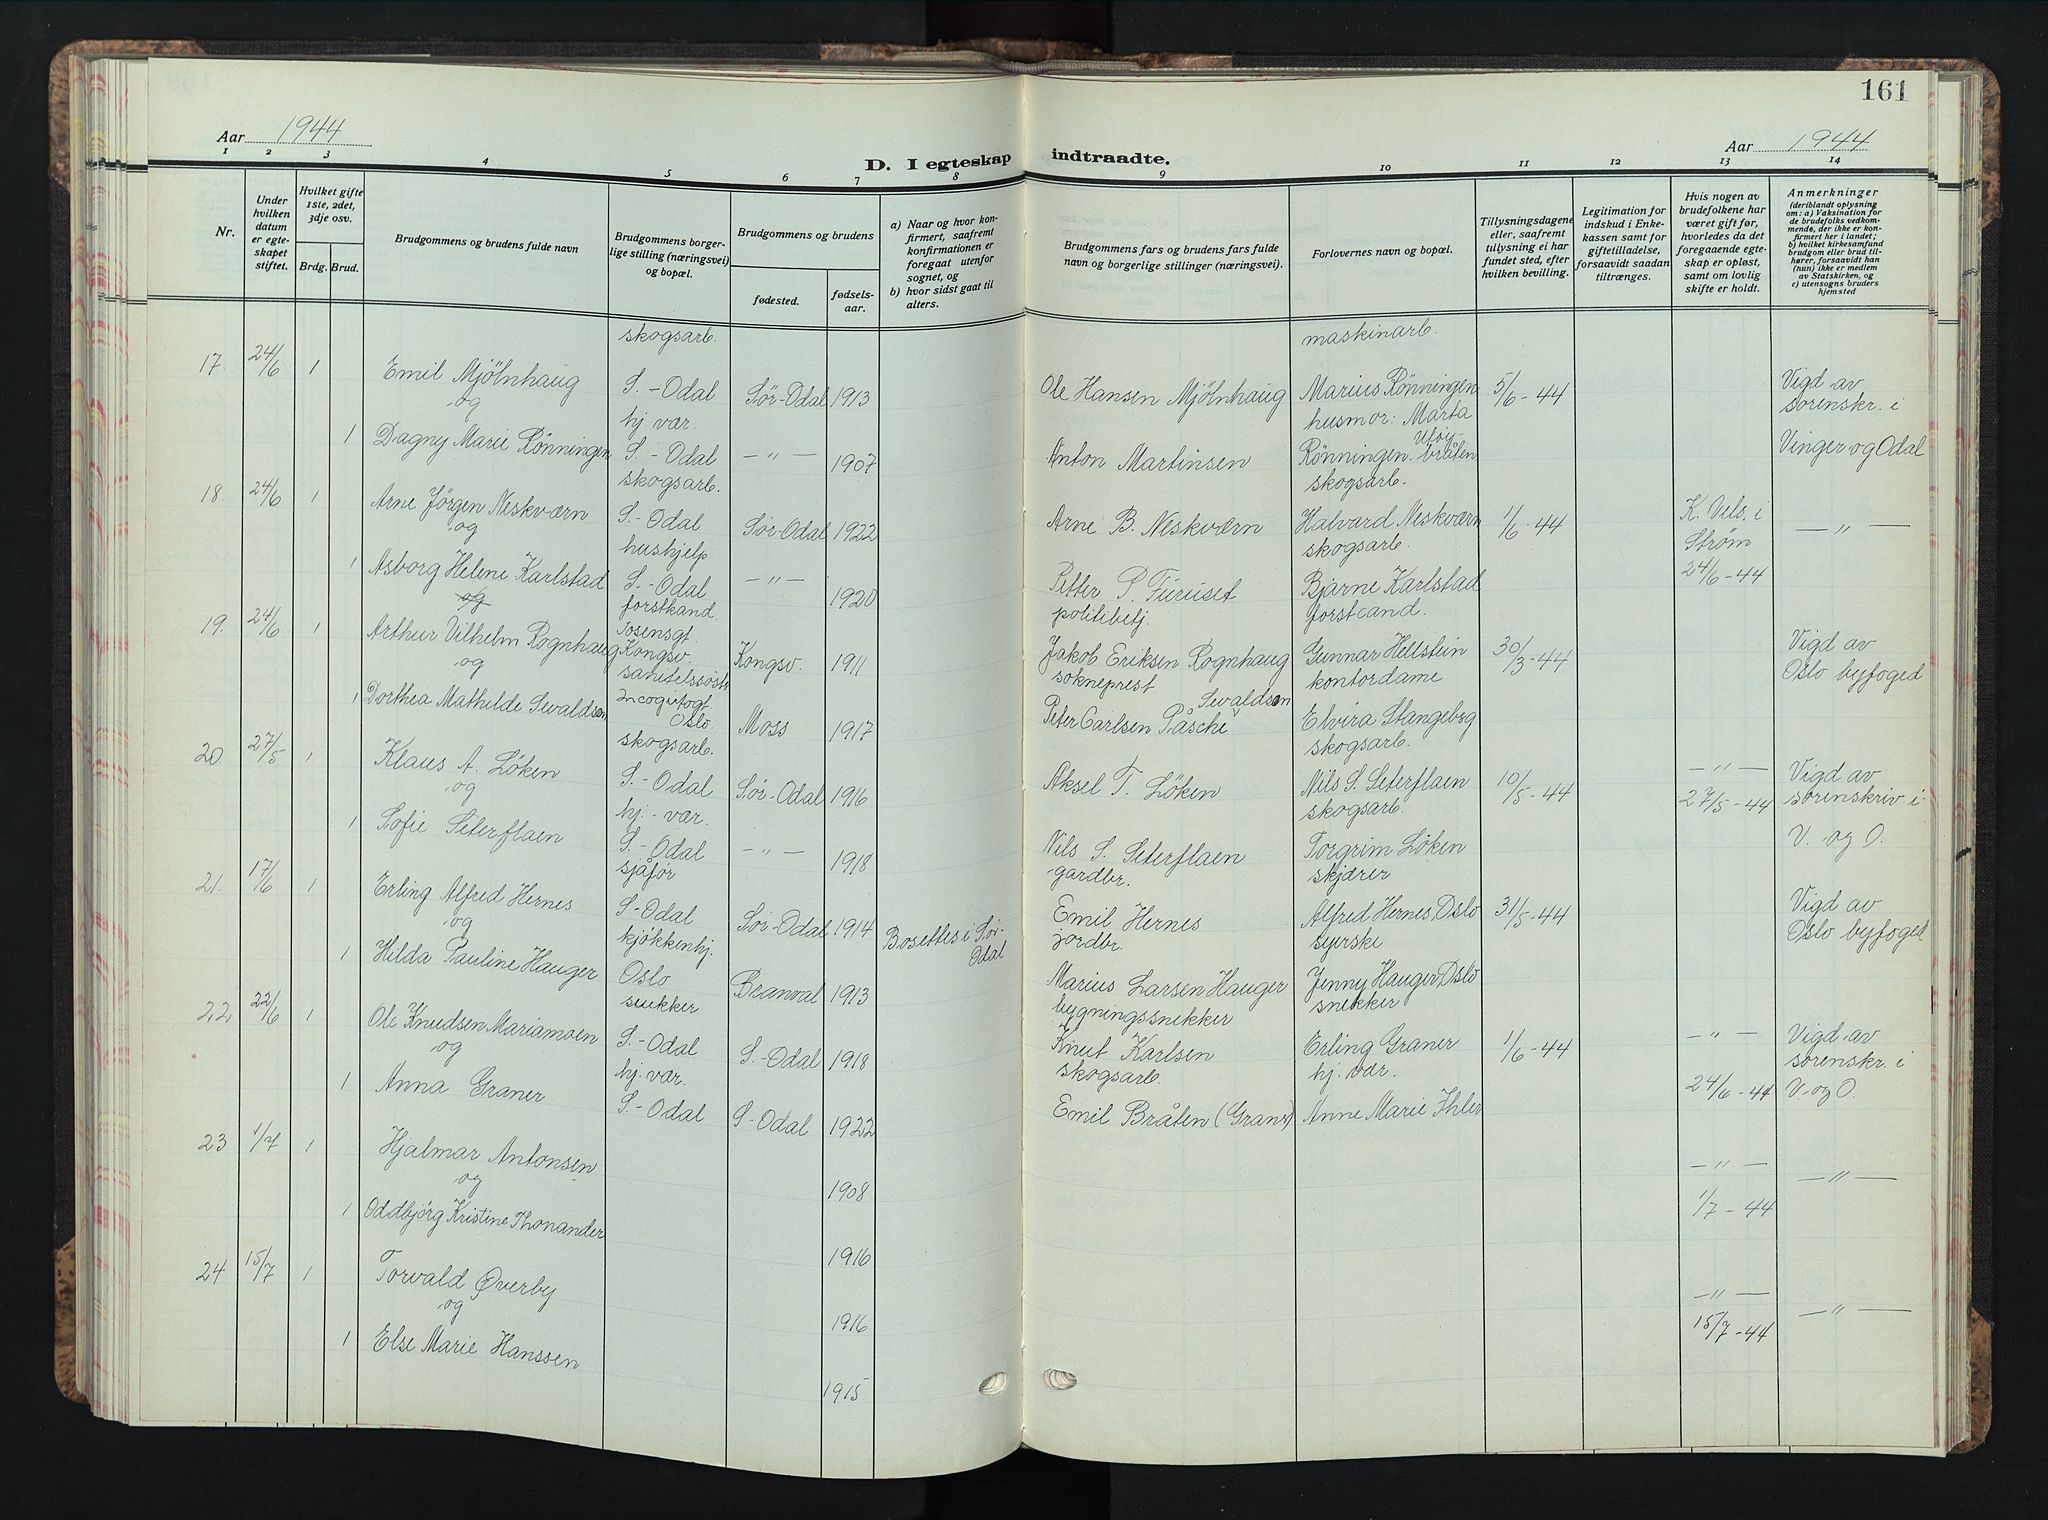 161
Aar 1944
D. I egteskap indtraadte.
Aar 1944
1 2 3 4 5 6 7 8 9 10 11 12 13 14
Nr.
Under hvilken datum er egteskapet stiftet.
Hvilket gifte 1ste, 2det, 3dje osv.
Brdg. Brud.
Brudgommens og brudens fulde navn
Brudgommens borgerlige stilling (næringsvei) og bopæl.
Brudgommens og brudens
fødested.
fødselsaar.
a) Naar og hvor konfirmert, saafremt konfirmationen er foregaat utenfor sognet, og
b) hvor sidst gaat til alters.
Brudgommens fars og brudens fars fulde navn og borgerlige stillinger (næringsvei).
Forlovernes navn og bopæl.
Tillysningsdagene eller, saafremt tillysning ei har fundet sted, efter hvilken bevilling.
Legitimation for indskud i Enkekassen samt for giftetilladelse, forsaavidt saadan tiltrænges.
Hvis nogen av brudefolkene har været gift før, hvorledes da det foregaaende egteskap er opløst, samt om lovlig skifte er holdt.
Anmerkninger (deriblandt oplysning om: a) Vaksination for de brudefolks vedkommende, der ikke er konfirmert her i landet; b) hvilket kirkesamfund brudgom eller brud tilhører, forsaavidt han (hun) ikke er medlem av Statskirken, og c) utensogns bruders hjemsted
skogsarb. maskinarb.
17. 24/6 1 Emil Mjölnhaug S.-Odal Sør-Odal 1913 Ole Hansen Mjölnhaug Marius Rönningen 5/6-44 Vigd av
og hj. vær. husmor: Marta sorenskr. i
1 Dagny Marie Rönningen S.-Odal —"— 1907 Anton Martinsen Rönningen. bråten Vinger og Odal
skogsarb. skogsarb.
18. 24/6 1 Arne Jörgen Neskværn S.-Odal Sør-Odal 1922 Arne B. Neskværn Halvard Neskværn 1/6-44 K. Vels. i —"—
og hushjelp skogsarb. Strøm
1 Asborg Helene Karlstad S.-Odal —"— 1920 Petter P. Furuset Bjarne Karlstad 24/6-44
og forstkand. politibetj. forstcand.
19. 24/6 1 Arthur Vilhelm Rognhaug Tosensgt. Kongsv. Kongsv. 1911 Jakob Eriksen Rognhaug Gunnar Hellstein 30/3-44 Vigd av
og sokneprest kontordame Oslo byfoged
1 Dorthea Mathilde Sewaldsen Oslo. Moss 1917 Peter Carlsen Påsche Sewaldsen Elvira Stangeberg
skogsarb. skogsarb.
20. 27/5 1 Klaus A. Løken S.-Odal Sør-Odal 1916 Aksel T. Løken Nils S. Seterflaen 10/5-44 —"— Vigd av
og hj.-vær. skogsarb. 27/5-44 sorenskriv i
1 Sofie Seterflaen S.-Odal —"— 1918 Nils S. Seterflaen Torgrim Løken V.- og O.
sjåför gardbr. skjærer
21. 17/6 1 Erling Alfred Hernes S.-Odal Sør-Odal 1914 Bosettes i Sør-Odal Emil Hernes Alfred Hernes, Oslo 31/5-44 Vigd av
og kjøkkenhj. jordbr. syerske Oslo byfoged
1 Hilda Pauline Hauger Oslo Branval 1913 Marius Larsen Hauger Jenny Hauger, Oslo
snekker bygningssnekker snekker
22. 22/6 1 Ole Knudsen Mariamoen S.-Odal S.-Odal 1918 Knut Karlsen Erling Graner 1/6-44 —"— Vigd av
og hj. vær. skogsarb. hj. vær. sorenskr. i
1 Anna Graner S.-Odal S.-Odal 1922 Emil Bråten (Graner) Anne Marie Ihler 24/6-44 V.-og O.
23 1/7 1 Hjalmar Antonsen 1908 —"— —"—
og 1/7-44
1 Oddbjörg Kristine Thonander 1916
24 15/7 1 Torvald Øverby 1916 —"— —"—
og 15/7-44
1 Else Marie Hanssen 1915